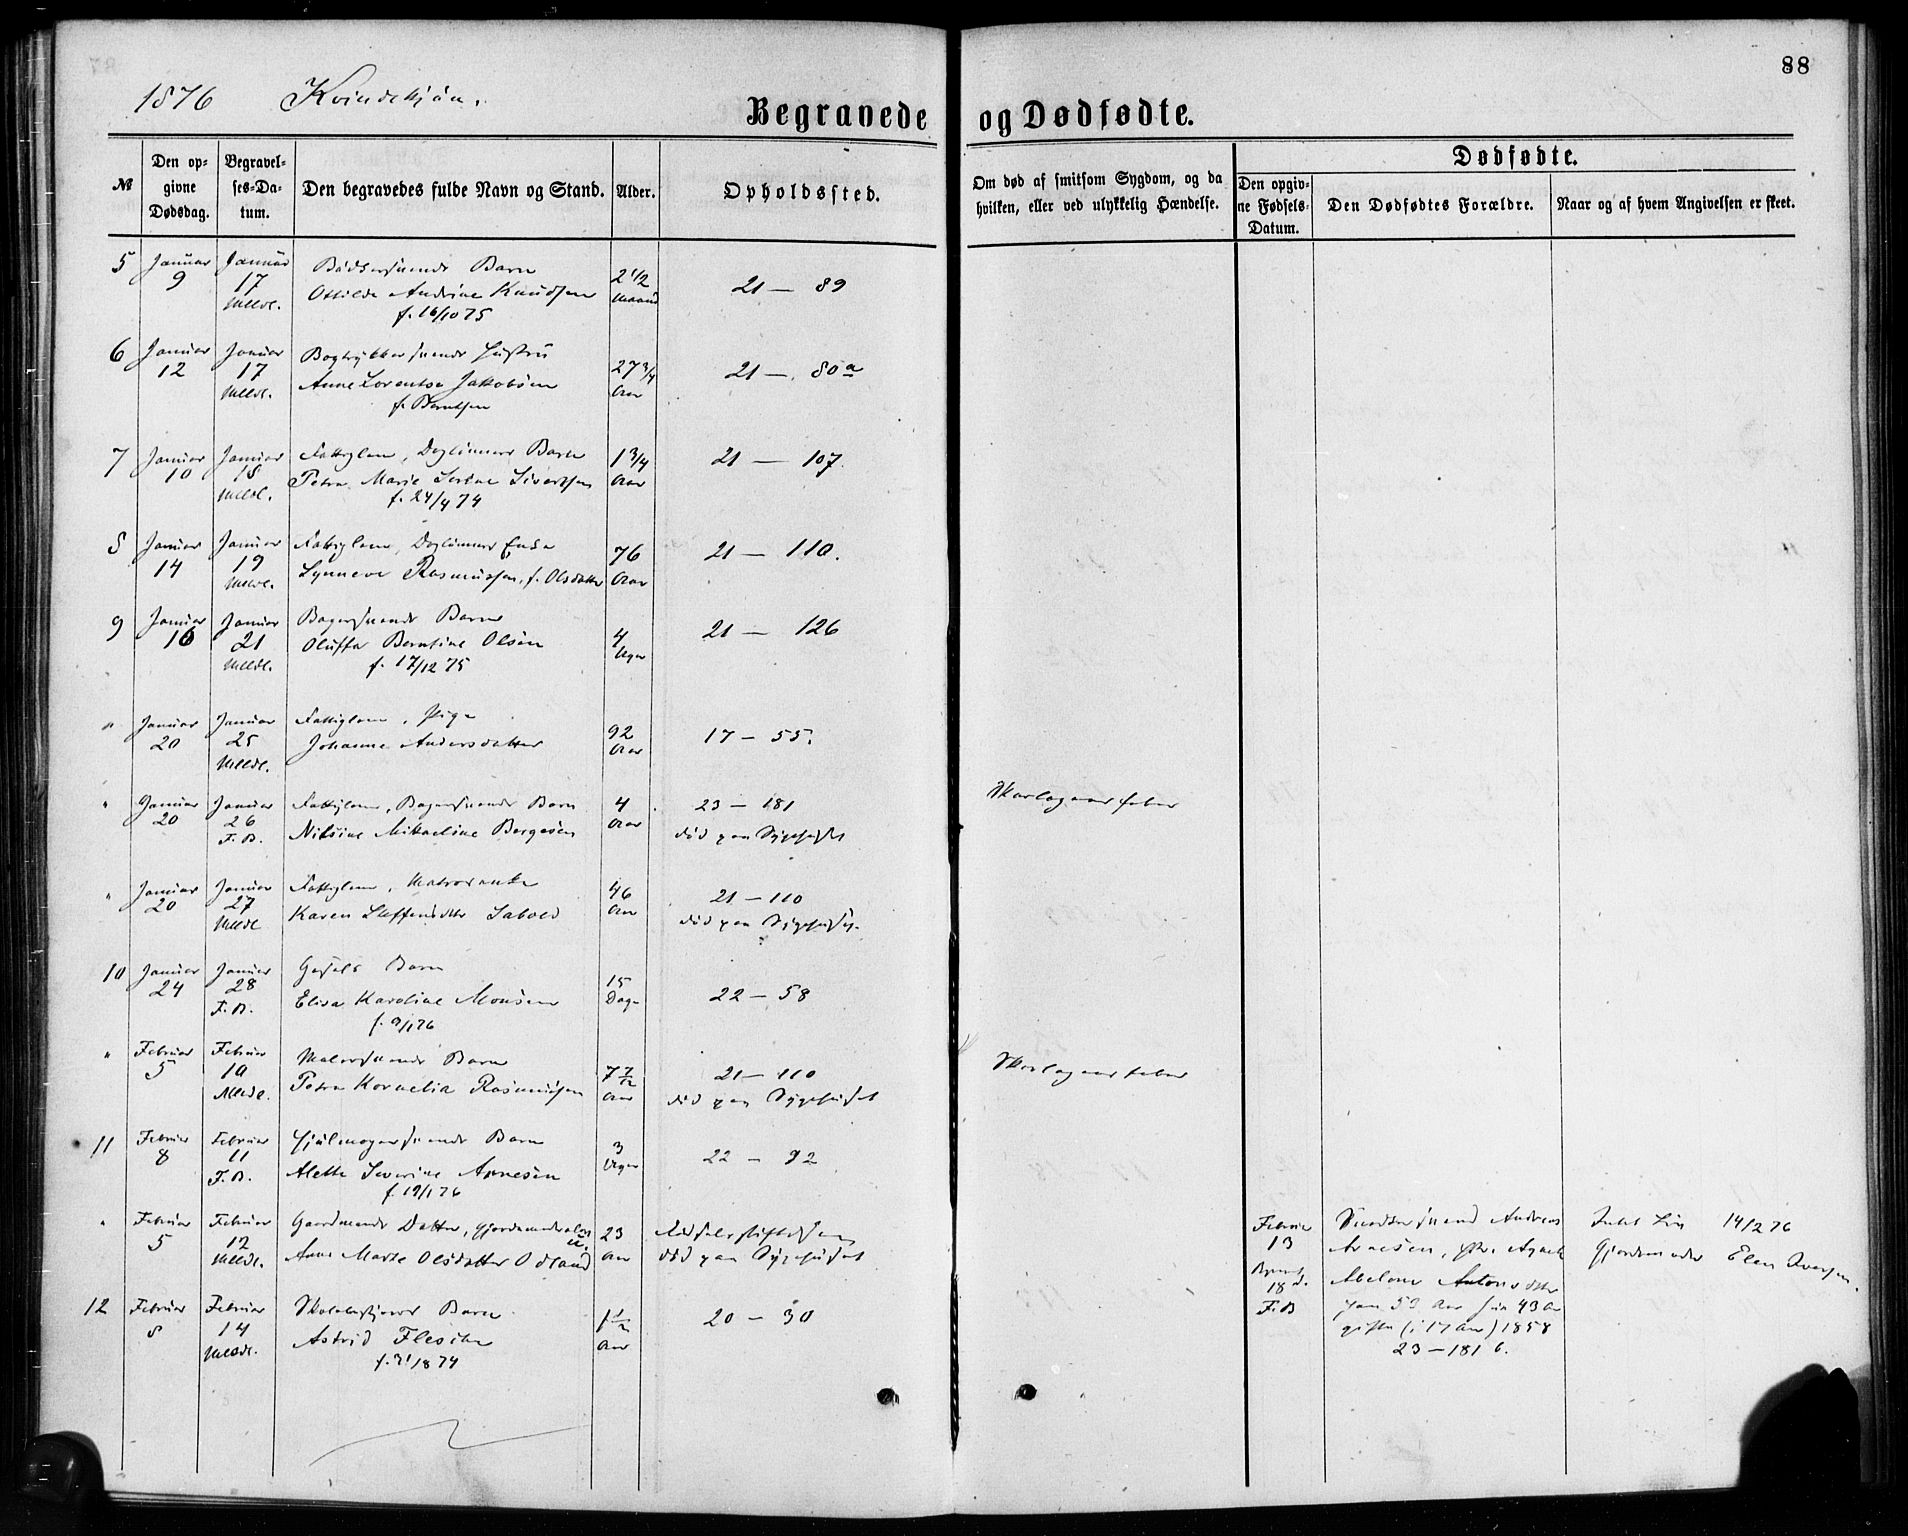 88
1876 Kvindekjøn.
Begravede og Dødfødte.
№
Den opgivne Dødsdag.
Begravelses-Datum.
Den begravedes fulde Navn og Stand.
Alder.
Opholdssted.
Om død af smitsom Sygdom, og da hvilken, eller ved ulykkelig Hændelse.
Dødfødte.
Den opgivne Fødsels-Datum.
Den Dødfødtes Forældre.
Naar og af hvem Angivelsen er skeet.
5 Januar Januar Bødkersvends Barn 2 1/2
9 17 Ottilde Andrine Knudsen Maaned 21 — 89
Meedl. f. 16/10 75
6 Januar Januar Bogtrykkersvends Hustru 27 3/4
12 17 Anne Lorentse Jakobsen Aar 21 — 80a
Meedl. f. Berntsen
7 Januar Januar Fattiglem, Daglønners Barn 1 3/4 21 — 107.
10 18 Petra Marie Serine Sivertsen Aar
Meedl. f. 24/4 74
8 Januar Januar Fattiglem, Daglønners Enke 76 21 — 110.
14 19 Synneve Rasmussen, f. Olsdatter Aar
Meedl.
9 Januar Januar Bagersvends Barn 4 21 — 126
16 21 Oluffa Berntine Olsen Uger
Meedl. f. 17/12 75
" Januar Januar Fattiglem, Pige 92
20 25 Johanne Andersdatter Aar 17 — 55.
Meedl.
" Januar Januar Fattiglem, Bagersvends Barn 4 23 — 181 Skarlagensfeber
20 26 Nikoline Mikaeline Børgesen Aar død paa Sygehuset
F.B.
" Januar Januar Fattiglem, Matrosenke 46 21 — 110
20 27 Karen Steffensdtr Aar død paa Sygehuset.
Meedl.
10 Januar Januar Gesels Barn 15
24 28 Elisa Karoline Monsen Dage 22 — 58
F.B. f. 9/1 76
" Februar Februar Malersvends Barn 7 7/12 21 — 110 Skarlagensfeber
5 10 Petra Kornelia Rasmussen Aar død paa Sygehuset
Meedl.
11 Februar Februar Hjulmagersvends Barn 3
8 11 Alette Severine Arnesen Uger 22 — 92
F.B. f. 19/1 76
" Februar Februar Gaardmands Datter, 23 Fødselsstiftelsen
5 12 Anne Marte Olsdatter Odland Aar død paa Sygehuset
Meedl.
12 Februar Februar Barn 1 1/2 20 — 30
8 14 Astrid Flesche Aar
Meedl. f. 31/8 74
Februar Andreas 14/2 76
13 Arnesen, Gjordemoder Elen Iversen
18 d. Abelone Antonsdtr
F.B. han 53 Aar hun 43 Aar
gifte (i 17 Aar) 1858
23 — 181 b.